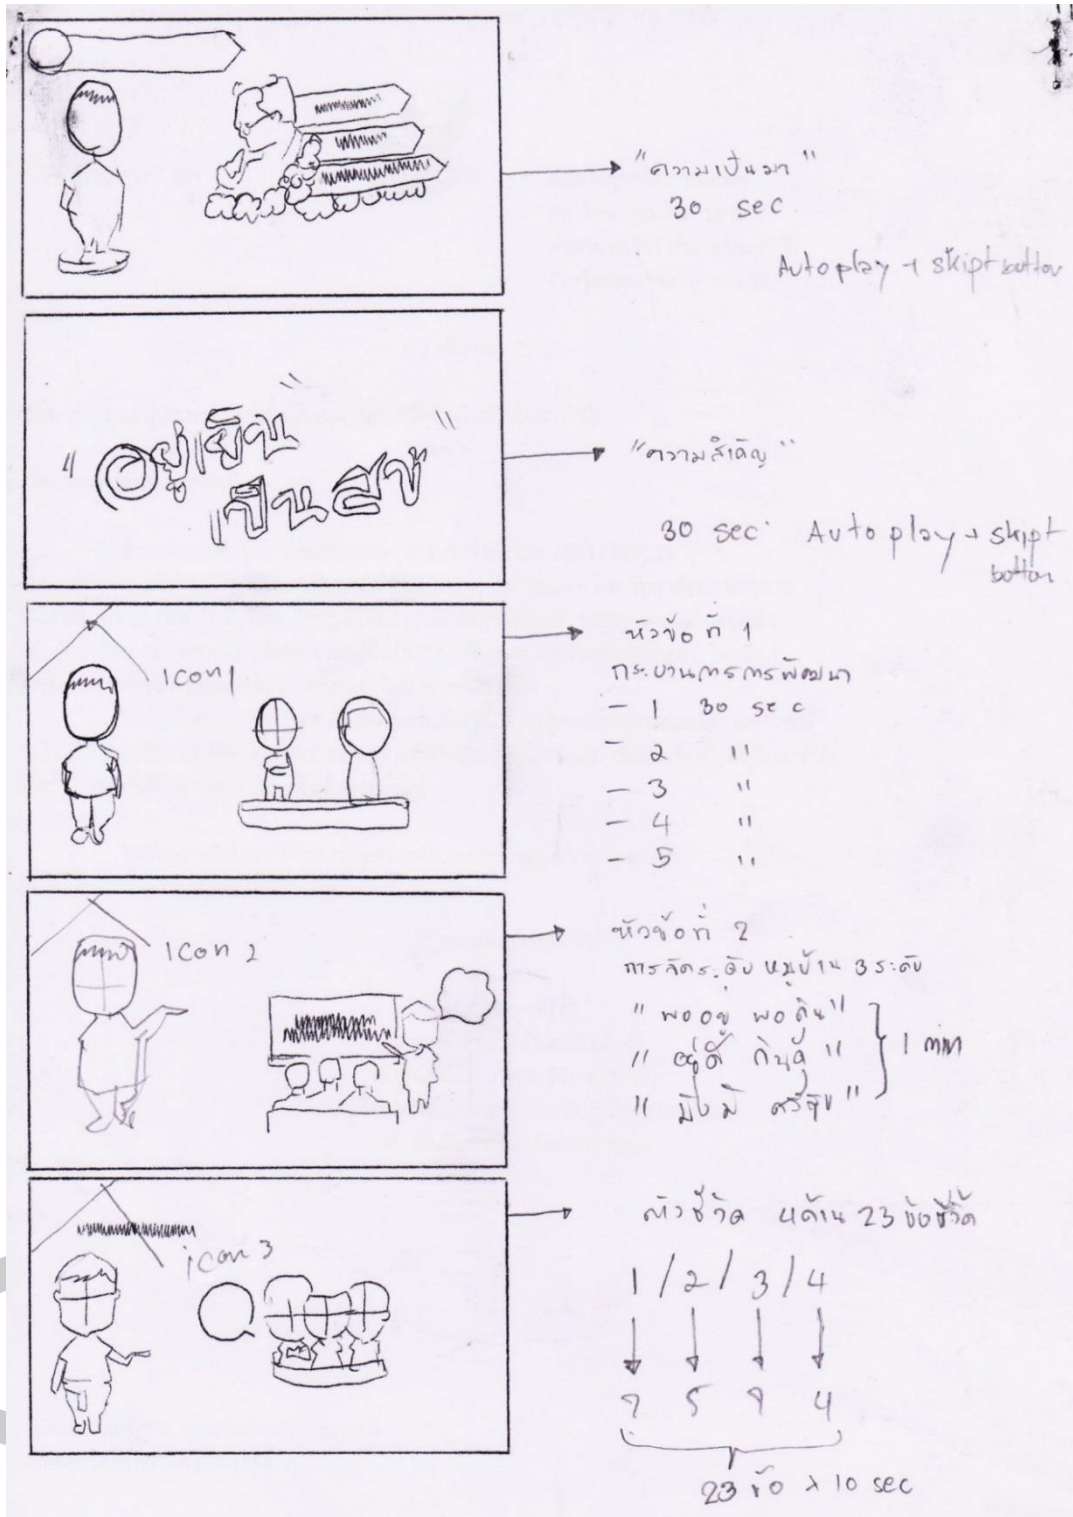 "ความเป็นมา"
30 sec
Autoplay + skipt button
"อยู่เย็น
เป็นสุข"
"ความสำคัญ"
30 sec Auto play + skipt
botton
icon1
หัวข้อที่ 1
กระบวนการการพัฒนา
- 1 30 sec
- 2 "
- 3 "
- 4 "
- 5 "
icon 2
หัวข้อที่ 2
การจัดระดับ หมู่บ้าน 3 ระดับ
"พออยู่ พอกิน"
"อยู่ดี กินดี" 1 min
"มั่งมี ศรีสุข"
icon 3
ตัวชี้วัด 4 ด้าน 23 ตัวชี้วัด
1 / 2 / 3 / 4
7 5 7 4
23 ข้อ x 10 sec